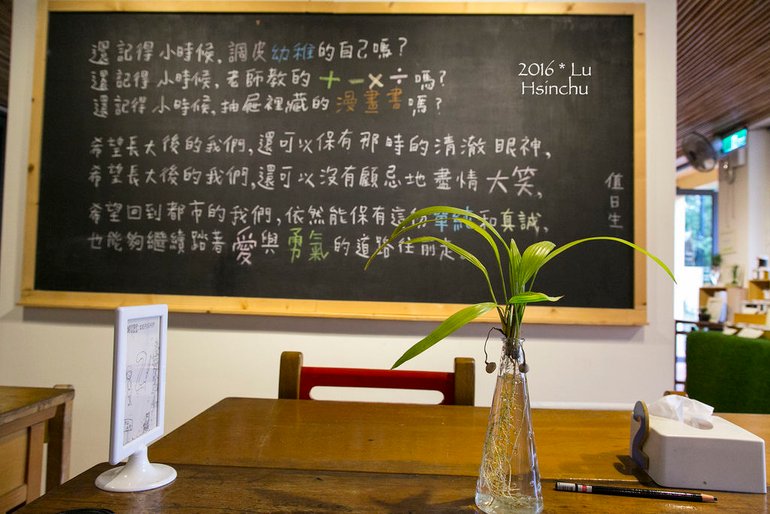 還記得小時候，調皮幼稚的自己嗎？
還記得小時候，老師教的＋－×÷嗎？
還記得小時候，抽屜裡藏的漫畫書嗎？
希望長大後的我們，還可以保有那時的清澈眼神，
希望長大後的我們，還可以沒有顧忌地盡情大笑，
希望回到都市的我們，依然能保有這份單純和真誠，
也能夠繼續踏著愛與勇氣的道路往前走
值日生
2016 * Lu
Hsinchu